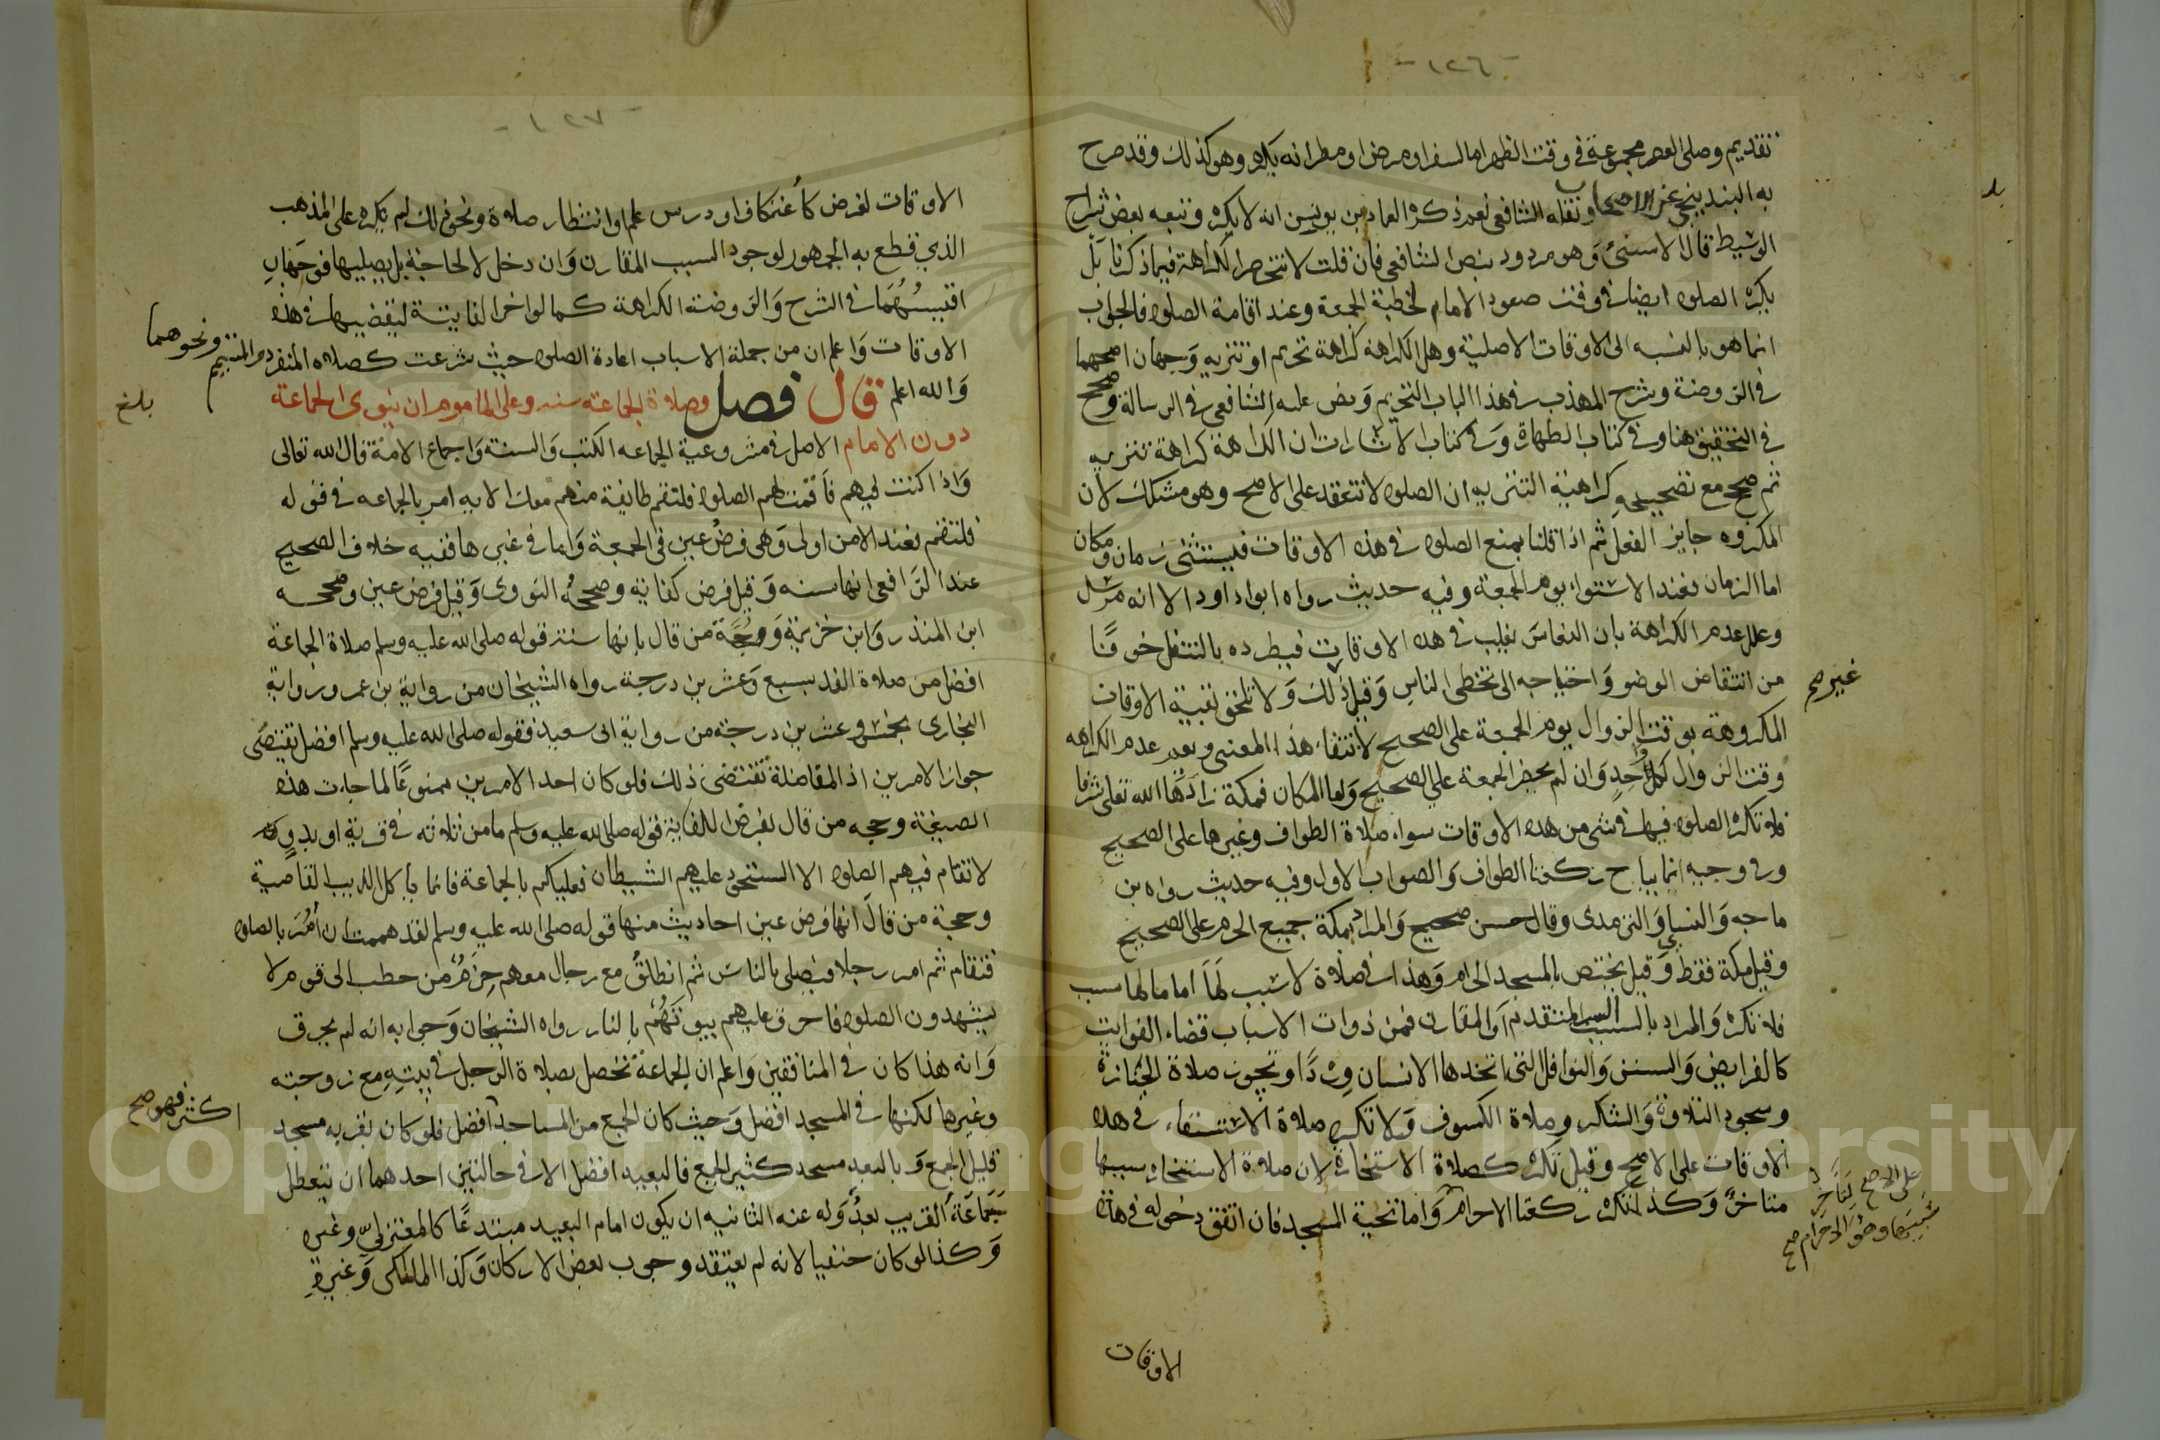 - ١٢٦ -
تقديم وصلى العصر مجموعة في وقت الظهر اما لسفر او مرض او مطر انه يكره وهو كذلك وقد صرح
به البندنيجي عن الاصحاب ونقله الشافعي نعم ذكر العماد بن يونس انه لا يكره وتبعه بعض شراح
الوسيط قال الاسنئ وهو مردود بنص الشافعي فان قلت لا تنحصر الكراهة فيما ذكرنا بل
يكره الصلوه ايضا في وقت صعود الامام لخطبة الجمعة وعند اقامة الصلوه فالجواب
انما هو بالنسبه الى الاوقات الاصلية وهل الكراهة كراهة تحريم او تنزيه وجهان اصحهما
في الروضة وشرح المهذب في هذا الباب التحريم ونص عليه الشافعي في الرسالة وصحح
في التحقيق هنا وفي كتاب الطهارة وفي كتاب الاشارات ان الكراهة كراهة تنزيه
ثم صحح مع تصحيحه كراهية التنزيه ان الصلوه لا تنعقد على الاصح وهو مشكل لان
المكروه جايز الفعل ثم اذا قلنا بمنع الصلوه في هذه الاوقات فيستثنى زمان ومكان
اما الزمان فعند الاستواء يوم الجمعة وفيه حديث رواه ابو داود الا انه مرسل
وعلل عدم الكراهة بان النعاس يغلب في هذه الاوقات فيطرده بالتنفل خوفا
من انتقاض الوضو واحتياجه الى تخطى الناس وقيل غير ذلك ولا تلحق بقية الاوقات
المكروهة بوقت الزوال يوم الجمعة على الصحيح لانتفاء هذا المعنى ويعم عدم الكراهه
وقت الزوال لكل احد وان لم يحضر الجمعة على الصحيح واما المكان فمكة زادها الله تعلى شرفا
فلا تكره الصلوه فيها في شى من هذه الاوقات سواء صلاة الطواف وغيرها على الصحيح
وفي وجه انما يباح ركعتا الطواف والصواب الاول وفيه حديث رواه بن
ماجه والنساي والترمذى وقال حسن صحيح والمراد بمكة جميع الحرم على الصحيح
وقيل مكة فقط وقيل يختص بالمسجد الحرام وهذا في صلاة لا سبب لها أما ما لها سبب
فلا تكره والمراد بالسبب السبب المتقدم او المقارن فمن ذوات الاسباب قضاء الفوايت
كالفرايض والسنن والنوافل التى اتخدها الانسان وردا وتجوز صلاة الجنازة
وسجود التلاوة والشكر وصلاة الكسوف ولا تكره صلاة الاستسقاء في هذه
الاوقات على الاصح وقيل تكره كصلاة الاستخارة لان صلاة الاستخاره سببها
متاخر وكذا تكره ركعتا الاحرام واما تحية المسجد فان اتفق دخوله في هذه
الاوقات
غير صح
على الاصح لتاخر
سببها وهو الاحرام صح
- ١٢٧ -
الاوقات لغرض كاعتكاف او درس علم او انتظار صلاة ونحو ذلك لم يكره على المذهب
الذي قطع به الجمهور لوجود السبب المقارن وان دخل لا لحاجة بل يصليها فوجهان
اقيسهما في الشرح والروضة الكراهة كما لو اخر الفايتة ليقضيها في هذه
الاوقات واعلم ان من جملة الاسباب اعادة الصلوه حيث شرعت كصلاه المنفرد والمتيمم ونحوهما
والله اعلم قال فصل وصلاة الجماعة سنه وعلى الماموم ان ينوى الجماعة
دون الامام الاصل في مشروعية الجماعه الكتب والسنة واجماع الامة قال الله تعالى
واذا كنت فيهم فأقمت لهم الصلوه فلتقم طايفة منهم معك الايه امر بالجماعه في قوله
فلتقم فعند الامن اولى وهى فرض عين في الجمعة واما في غيرها ففيه خلاف الصحيح
عند الرافعى انها سنه وقيل فرض كفاية وصححه النووى وقيل فرض عين وصححه
ابن المنذر وابن خزيمة وحجة من قال بانها سنة قوله صلى الله عليه وسلم صلاة الجماعة
افضل من صلاة الفذ بسبع وعشرين درجة رواه الشيخان من رواية بن عمر ورواية
البخارى بخمس وعشرين درجة من رواية ابى سعيد فقوله صلى الله عليه وسلم افضل تقيتضى
جواز الامرين اذ المفاضلة تقتضى ذلك فلو كان احد الامرين ممنوعا لما جاءت هذه
الصيغة وحجه من قال بفرض الكفاية قوله صلى الله عليه وسلم ما من ثلاثه في قرية او بدو
لا تقام فيهم الصلوه الا استحوذ عليهم الشيطان فعليكم بالجماعة فانما يأكل الذيب القاصية
وحجة من قال انها فرض عين احاديث منها قوله صلى الله عليه وسلم لقد هممت ان أمر بالصلوه
فتقام ثم امر رجلا فيصلى بالناس ثم انطلق مع رجال معهم حزم من حطب الى قوم لا
يشهدون الصلوه فاحرق عليهم بيوتهم بالنار رواه الشيخان وجوابه انه لم يحرق
وانه هذا كان في المنافقين واعلم ان الجماعة تحصل بصلاة الرجل في بيته مع زوجته
وغيرها لكنها في المسجد افضل وحيث كان الجمع من المساجد افضل فلو كان بقربه مسجد
قليل الجمع وبالبعد مسجد كثير الجمع فالبعيد افضل الا في حالتين احدهما ان يتعطل
جماعة القريب بعدوله عنه الثانيه ان يكون امام البعيد مبتدعا كالمعتزلي وغيره
وكذا لو كان حنفيا لانه لم يعتقد وجوب بعض الاركان وكذا المالكى وغيره
بلغ
اكثر فهو صح
Copyright © King Saud University